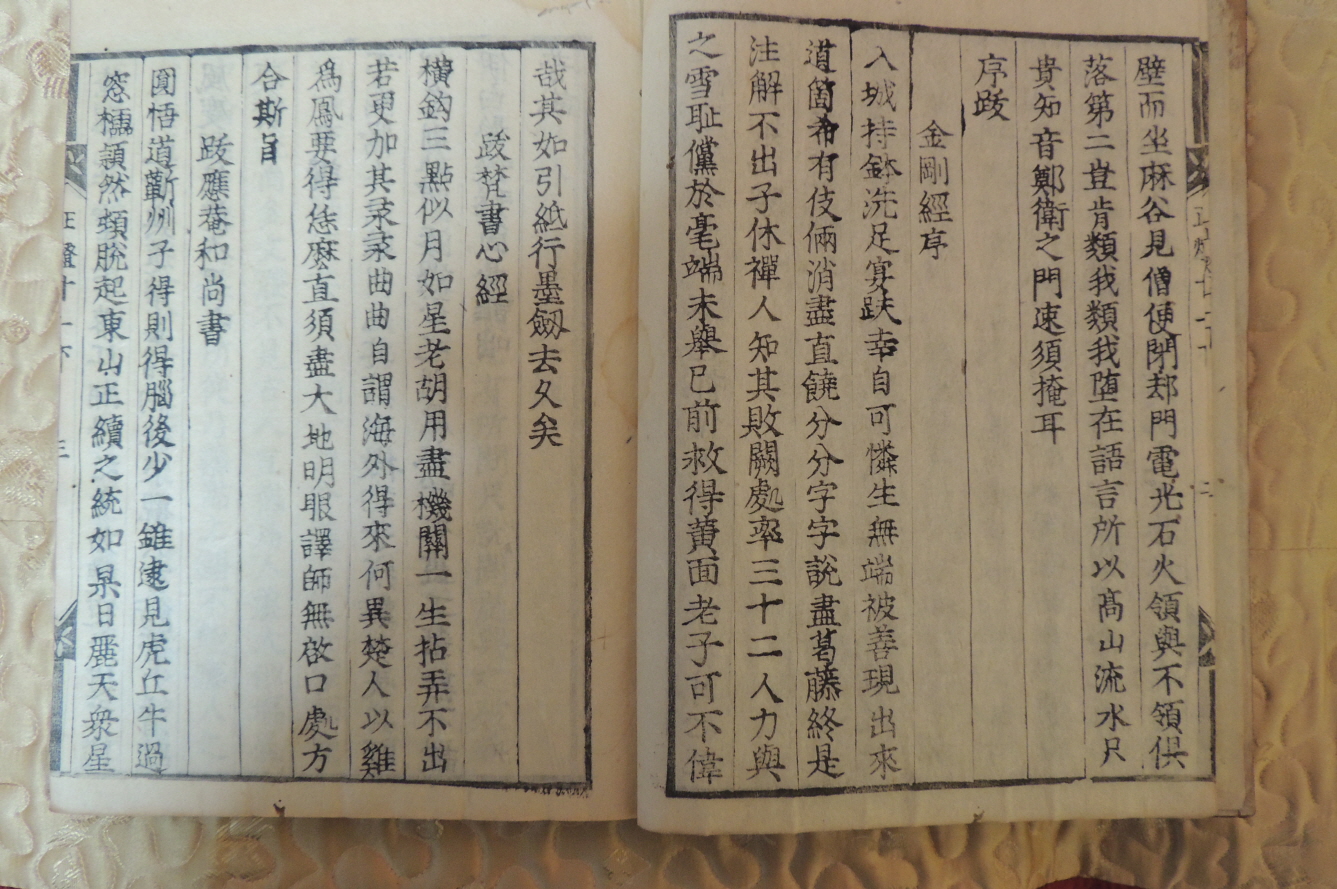 壁而坐麻谷見僧便閉却門電光石火領與不領俱
落第二豈肯類我類我堕在語言所以髙山流水只
貴知音鄭衛之門速須掩耳
序跋
金剛經序
入城持鉢洗足宴趺幸自可憐生無端被善現出來
道箇希有伎倆消盡直饒分分字字說盡葛藤終是
注解不出子休禪人知其敗闕處率三十二人力與
之雪耻儻於毫端未舉已前救得黄面老子可不偉
哉其如引紙行墨劒去久矣
跋梵書心經
橫鈎三點似月如星老胡用盡機關一生拈弄不出
若更加其菉菉曲曲自謂海外得來何異楚人以雞
爲鳳要得恁麽直須盡大地明眼譯師無啟口處方
合斯旨
跋應菴和尚書
圓悟道蘄州子得則得腦後少一錐逮見虎丘牛過
窓櫺頴然頓脫起東山正續之統如杲日麗天衆星
十一下
三